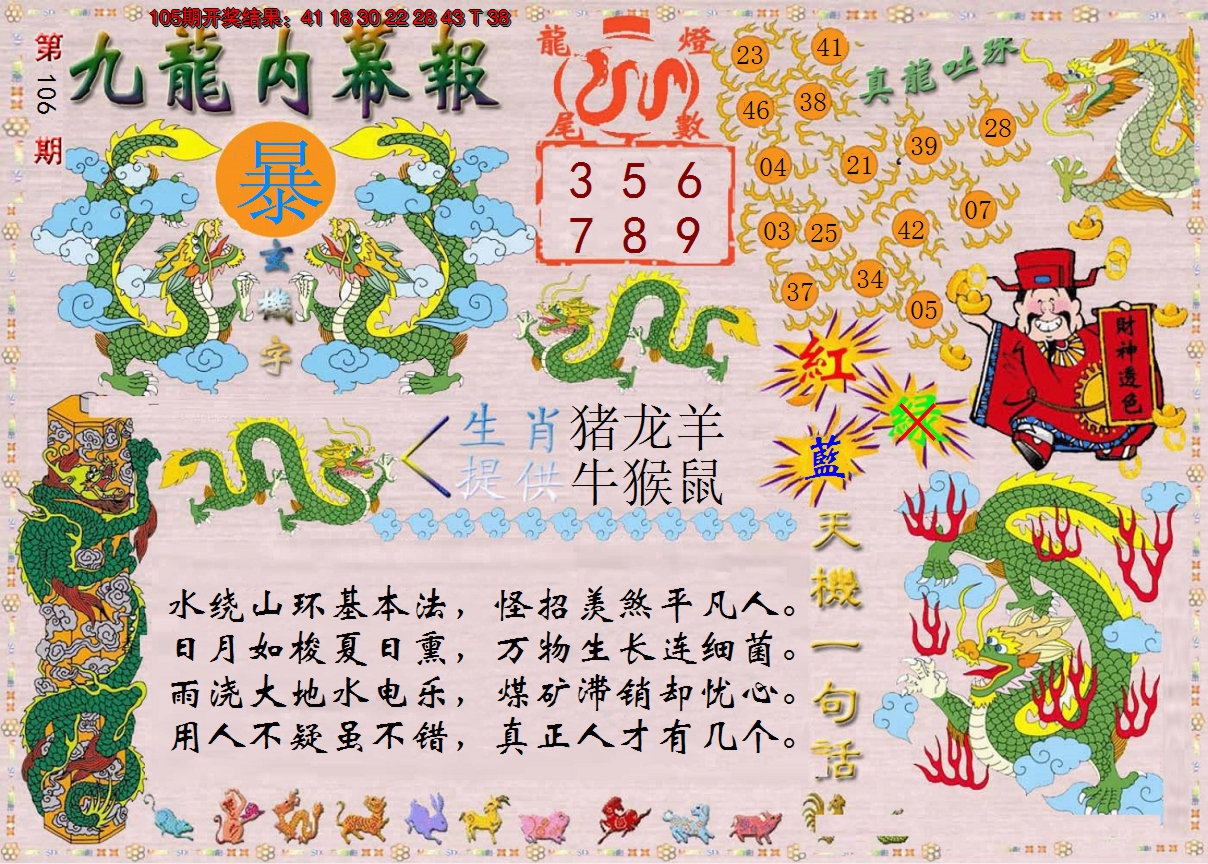 105期开奖结果：41 18 30 22 28 43 T 38
第106期
九龍内幕報
暴
玄機字
龍燈
尾數
3 5 6
7 8 9
真龍吐珠
23
41
46
38
04
21
39
28
03
25
42
07
37
34
05
財神透色
紅
绿
藍
生肖 猪龙羊
提供 牛猴鼠
天機一句話
水绕山环基本法，怪招羡煞平凡人。
日月如梭夏日熏，万物生长连细菌。
雨浇大地水电乐，煤矿滞销却忧心。
用人不疑虽不错，真正人才有几个。